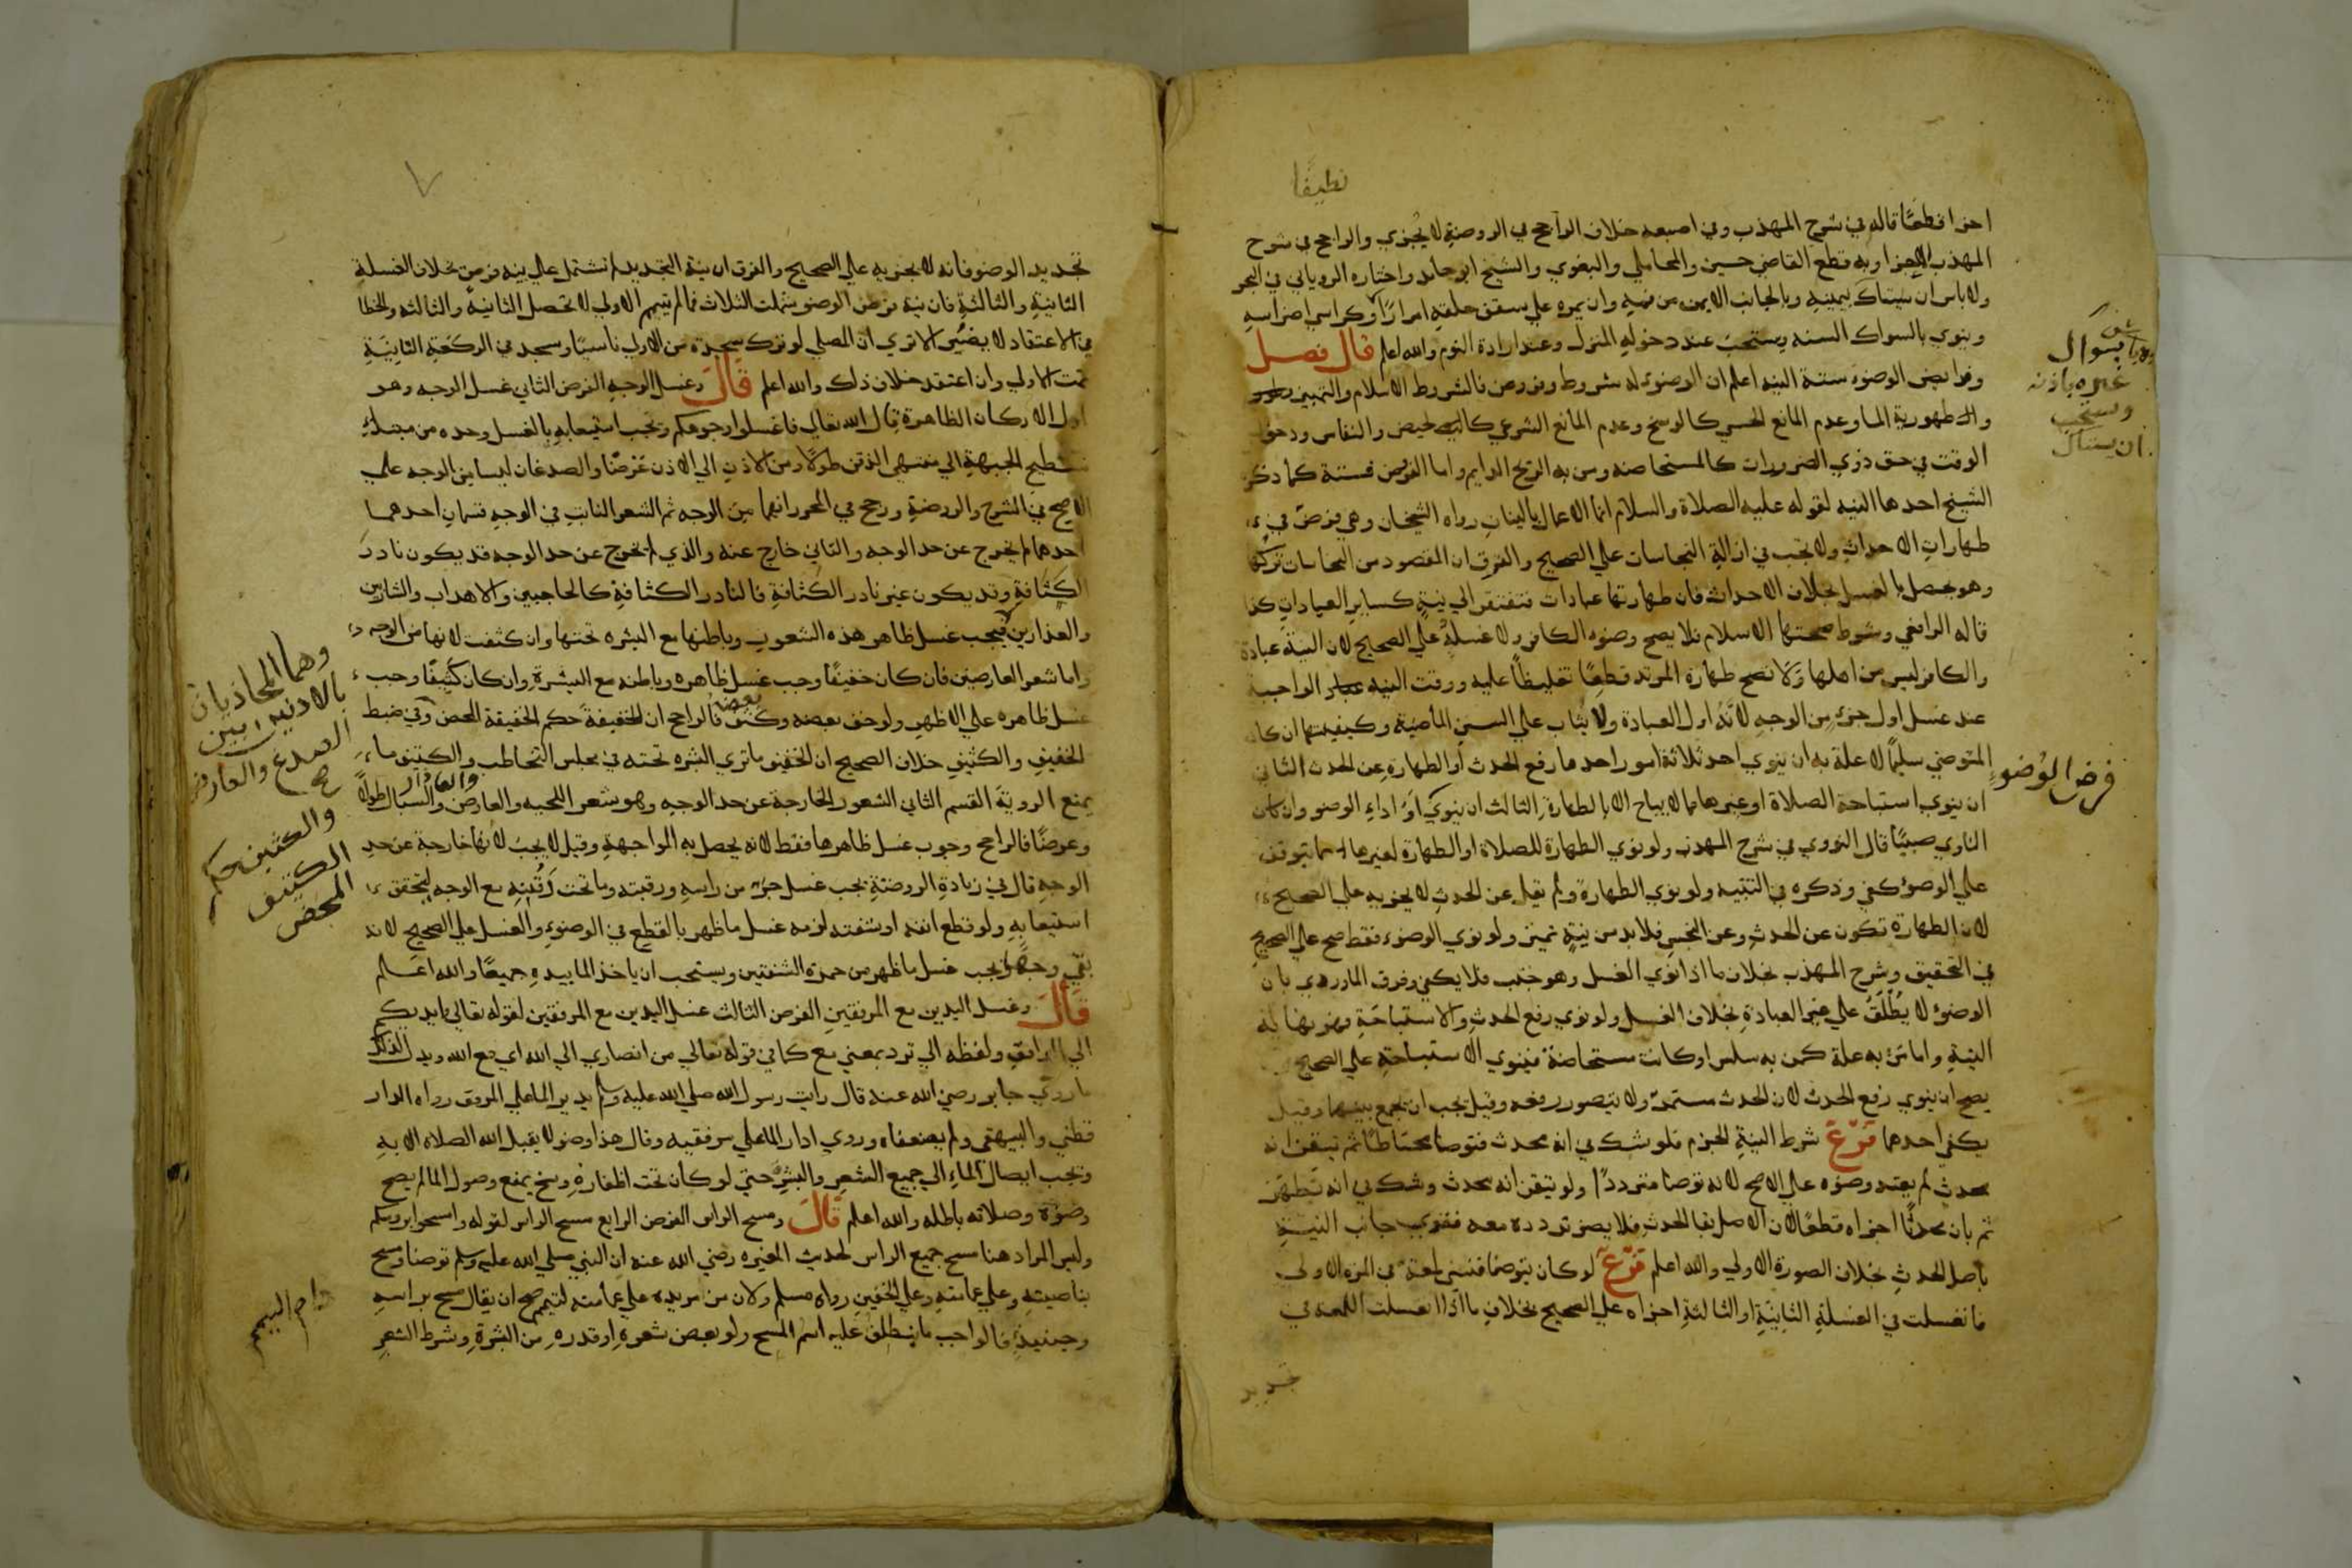 نظيفا
اجزا قطعًا قاله في شرح المهذب وفي اصبعه خلاف الراجح في الروضة لا يجزي والراجح في شرح
المهذب الاجزا وبه قطع القاضي حسين والمحاملي والبغوي والشيخ ابو حامد واختاره الروياني في البحر
ولا باس ان يستاك بسواك غيره باذنه ويستحب ان يستاك بيمينه وبالجانب الايمن من فمه وان يمره علي سقف حلقه امرارًا وكراسي اضراسه
وينوي بالسواك السنه ويستحب عند دخوله المنزل وعند ارادة النوم والله اعلم قال فصل
وفرايض الوضوء ستة النيه اعلم ان الوضوء له شروط وفروض فالشروط الاسلام والتمييز
وطهورية الما وعدم المانع الحسي كالوسخ وعدم المانع الشرعي كالحيض والنفاس ودخول
الوقت في حق ذوي الضرورات كالمستحاضه ومن به الريح الدايم واما الفروض فستة كما ذكر
الشيخ احدها النيه لقوله عليه الصلاة والسلام انما الاعمال بالنيات رواه الشيخان وهي فرض في
طهارات الاحداث ولا تجب في ازالة النجاسات علي الصحيح والفرق ان المقصود من النجاسات تركها
وهو حصل بالغسل بخلاف الاحداث فان طهارتها عبادات فتفتقر الي نية كساير العبادات كذا
قاله الرافعي وشرط صحتها الاسلام فلا يصح وضوء الكافر ولا غسله علي الصحيح لان النية عبادة
والكافر ليس من اهلها ولا تصح طهارة المرتد قطعًا تغليظًا عليه ووقت النيه الواجبة
عند غسل اول جزء من الوجه لانه اول العبادة ولا يثاب علي السنن الماضية وكيفيتها ان كان
المتوضي سليمًا لا علة به ان ينوي احد ثلاثة امور احدها رفع الحدث او الطهارة عن الحدث الثاني
ان ينوي استباحة الصلاة او غيرها مما لا يباح الا بالطهارة الثالث ان ينوي اداء الوضو وان كان
الناوي صبيًا قال النووي في شرح المهذب ولو نوي الطهارة للصلاة او الطهارة لغيرها مما يتوقف
علي الوضوء كفي وذكره في التنبيه ولو نوي الطهارة ولم يقل عن الحدث لا يجزيه علي الصحيح
لان الطهارة تكون عن الحدث وعن النجس فلا بد من نية تميز ولو نوي الوضوء فقط صح علي الصحيح
في التحقيق وشرح المهذب بخلاف ما اذا نوي الغسل وهو جنب فلا يكفي وفرق الماوردي بان
الوضوء لا يُطلَقُ علي غير العبادة بخلاف الغسل ولو نوي رفع الحدث والاستباحة فهو نهاية
النية واما من به علة كمن به سلس او كانت مستحاضة فينوي الاستباحة علي الصحيح
يصح ان ينوي رفع الحدث لان الحدث مستمر ولا يتصور رفعه وقيل يجب ان يجمع بينهما وقيل
يكفي احدهما فرع شرط النية الجزم فلو شك في انه محدث فتوضا محتاطًا ثم تيقن انه
محدث لم يعتد وضوءه علي الاصح لانه توضا مترددًا ولو تيقن انه محدث وشك في انه تطهر
ثم بان محدثًا اجزاه قطعًا لان الاصل بقا الحدث فلا يضر تردده معه فقوي جانب النية
باصل الحدث بخلاف الصورة الاولي والله اعلم فرع لو كان يتوضا فنسي لمعة في المرة الاولي
فانغسلت في الغسلة الثانية او الثالثة اجزاه علي الصحيح بخلاف ما اذا انغسلت اللمعة في
تجديد
بسواك
غيره باذنه
ويستحب
ان يستاك
فرض الوضوء
٧
تجديد الوضو فانه لا يجزيه علي الصحيح والفرق ان نية التجديد لم تشتمل علي نية فرض بخلاف الغسلة
الثانية والثالثة فان نية فرض الوضو شملت الثلاث فما لم يتم الاولي لا تحصل الثانية والثالثة والخطا
في الاعتقاد لا يضُر الا تري ان المصلي لو ترك سجدة من الاولي ناسيًا وسجد في الركعة الثانية
تمت الاولي وان اعتقد خلاف ذلك والله اعلم قال وغسل الوجه الفرض الثاني غسل الوجه وهو
اول الاركان الظاهرة قال الله تعالي فاغسلوا وجوهكم ويجب استيعابه بالغسل وحده من مبتدا
تسطيح الجبهة الي منتهي الذقن طولًا ومن الاذن الي الاذن عرضًا والصدغان ليسا من الوجه علي
الاصح في الشرح والروضة ورجح في المحرر انهما من الوجه ثم الشعر النابت في الوجه قسمان احدهما
احدهما لم يخرج عن حد الوجه والثاني خارج عنه والذي لم يخرج عن حد الوجه قد يكون نادر
الكثافة وقد يكون غير نادر الكثافة فالنادر الكثافة كالحاجبين والاهداب والشاربين
والعذارين فيجب غسل ظاهر هذه الشعور وباطنها مع البشره تحتها وان كثفت لانها من الوجه
واما شعر العارضين فان كان خفيفًا وجب غسل ظاهره وباطنه مع البشرة وان كان كثيفًا وجب
غسل ظاهره علي الاظهر ولو خف بعضه وكثف بعضه فالراجح ان للخفيف حكم الخفيف المحض وفي ضبط
الخفيف والكثيف خلاف الصحيح ان الخفيف ما تري البشره تحته في مجلس التخاطب والكثيف ما
يمنع الروية القسم الثاني الشعور الخارجة عن حد الوجه وهو شعر اللحيه والعارض والعذار والسبال طولًا
وعرضًا فالراجح وجوب غسل ظاهرها فقط لانه يحصل به المواجهة وقيل لا يجب لانها خارجة عن حد
الوجه قال في زيادة الروضة يجب غسل جزء من راسه ورقبته وما تحت ذقنه مع الوجه ليتحقق
استيعابه ولو قطع انفه او شفته لزمه غسل ما ظهر بالقطع في الوضوء والغسل علي الصحيح لانه
بقي وجهًا ويجب غسل ما ظهر من حمرة الشفتين ويستحب ان ياخذ الما بيديه جميعًا والله اعلم
قال وغسل اليدين مع المرفقين الفرض الثالث غسل اليدين مع المرفقين لقوله تعالي وايديكم
الي المرافق ولفظه الي ترد بمعني مع كما في قوله تعالي من انصاري الي الله اي مع الله ويدل لذلك
ما روي جابر رضي الله عنه قال رايت رسول الله صلي الله عليه وسلم يدير الما علي المرفق رواه الدار
قطني والبيهقي ولم يضعفاه وروي ادار الما علي مرفقيه وقال هذا وضو لا يقبل الله الصلاة الا به
ويجب ايصال الماء الي جميع الشعر والبشر حتي لو كان تحت اظفاره وسخ يمنع وصول الما لم يصح
وضوءه وصلاته باطله والله اعلم قال ومسح الراس الفرض الرابع مسح الراس لقوله وامسحوا بروسكم
وليس المراد هنا مسح جميع الراس لحديث المغيره رضي الله عنه ان النبي صلي الله عليه وسلم توضا ومسح
بناصيته وعلي عمامته وعلي الخفين رواه مسلم ولان من مر يده علي هامته اليتيم صح ان يقال مسح براسه
وحينيذ فالواجب ما ينطلق عليه اسم المسح ولو بعض شعره او قدره من البشرة وشرط الشعر
وهما المحاذيان
بالاذنين بين
الصدغ والعارض
صح
والكثيف حكم
الكثيف
المحض